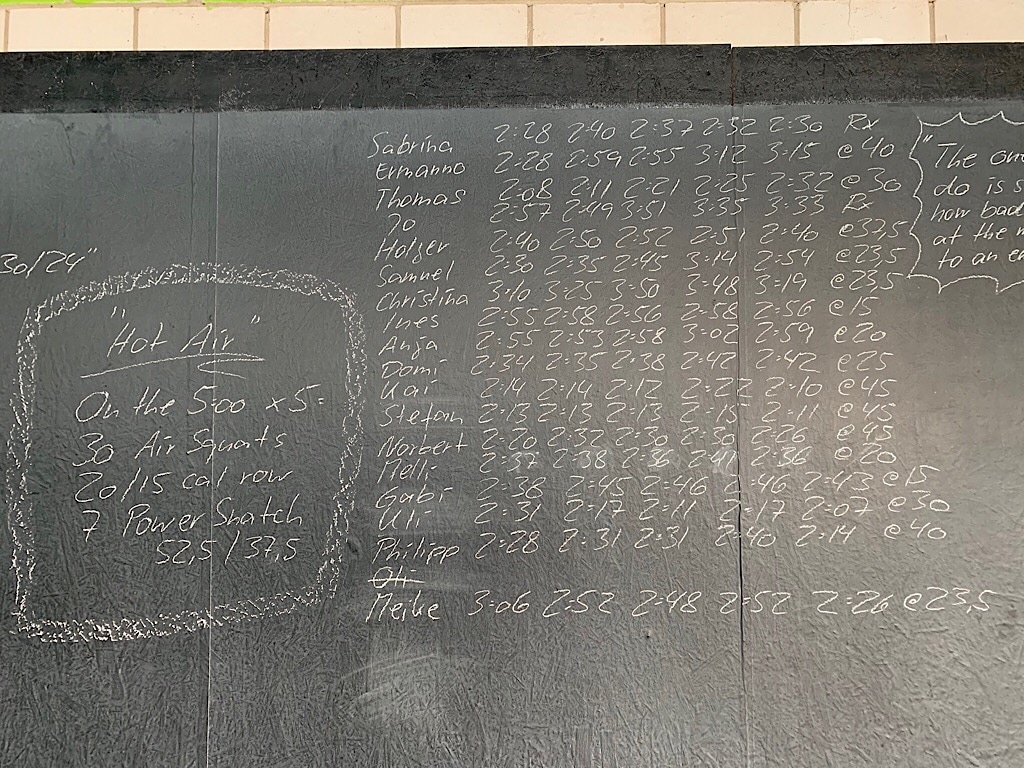 30/24"
"Hot Air"
On the 5:00 x5:
30 Air Squats
20/15 cal row
7 Power Snatch
52,5/37,5
Sabrina 2:28 2:40 2:37 2:32 2:30 Rx
Ermanno 2:28 2:59 2:55 3:12 3:15 @40
Thomas 2:08 2:11 2:21 2:25 2:32 @30
Jo 2:57 2:49 3:51 3:35 3:33 Rx
Holger 2:40 2:50 2:52 2:51 2:40 @37,5
Samuel 2:30 2:35 2:45 3:14 2:54 @23,5
Christina 3:10 3:25 3:50 3:48 3:19 @23,5
Ines 2:55 2:58 2:56 2:58 2:56 @15
Anja 2:55 2:53 2:58 3:02 2:59 @20
Domi 2:34 2:35 2:38 2:42 2:42 @25
Kai 2:14 2:14 2:12 2:22 2:10 @45
Stefan 2:13 2:13 2:13 2:15 2:11 @45
Norbert 2:20 2:32 2:30 2:30 2:26 @45
Melli 2:37 2:38 2:36 2:41 2:36 @20
Gabi 2:38 2:45 2:46 2:46 2:43 @15
Uli 2:31 2:17 2:11 2:17 2:07 @30
Philipp 2:28 2:31 2:31 2:40 2:14 @40
Oli
Meike 3:06 2:52 2:48 2:52 2:26 @23,5
"The one
do is s
how bad
at the m
to an en